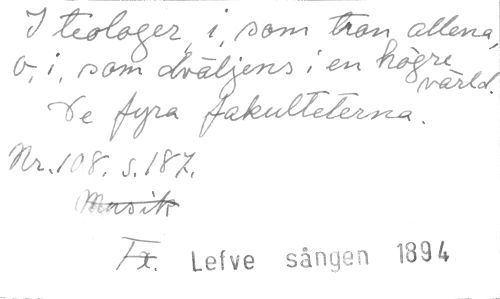 I teologer, i, som tron allena,
o, i, som dväljens i en högre
värld.
De fyra fakulteterna.
Nr. 108. s. 187.
Musik
Fx. Lefve sången 1894